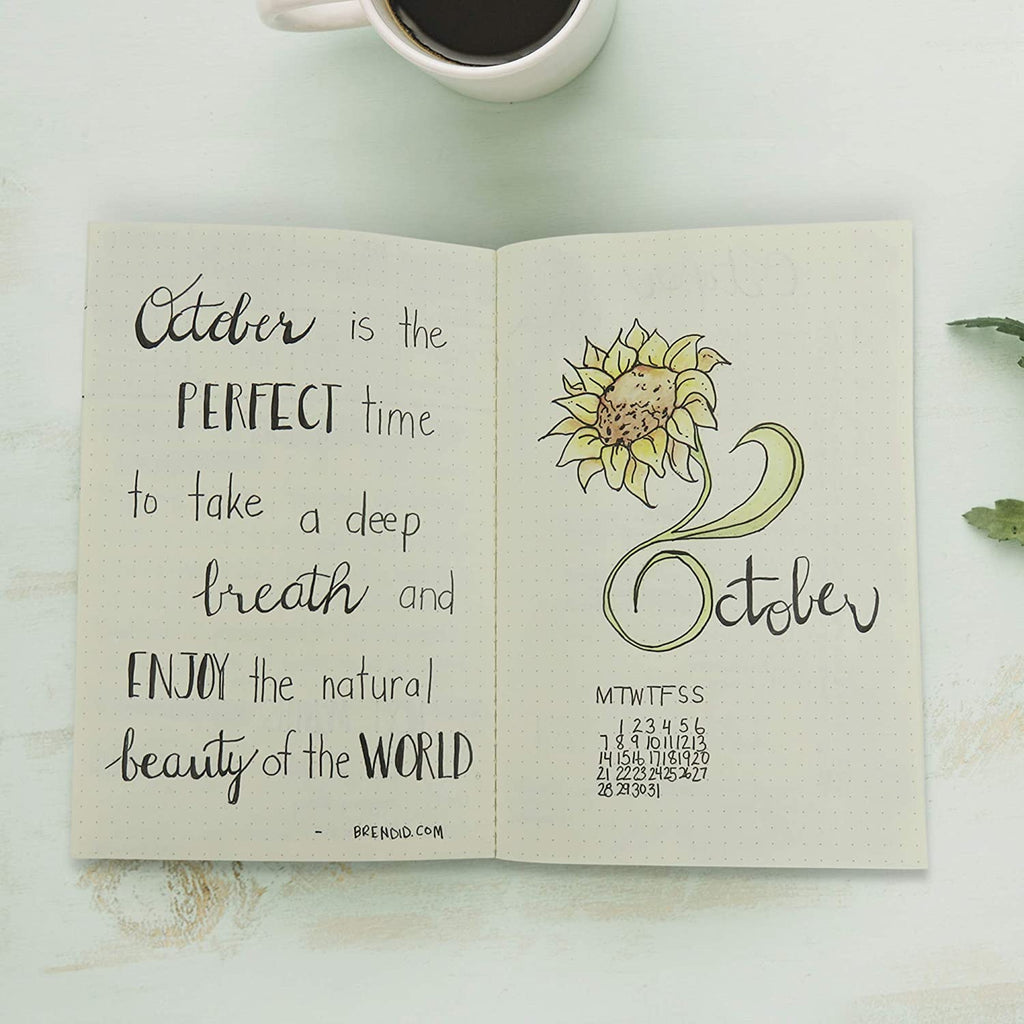 October is the
PERFECT time
to take a deep
breath and
ENJOY the natural
beauty of the WORLD
- BRENDID.COM
October
M T W T F S S
1 2 3 4 5 6
7 8 9 10 11 12 13
14 15 16 17 18 19 20
21 22 23 24 25 26 27
28 29 30 31